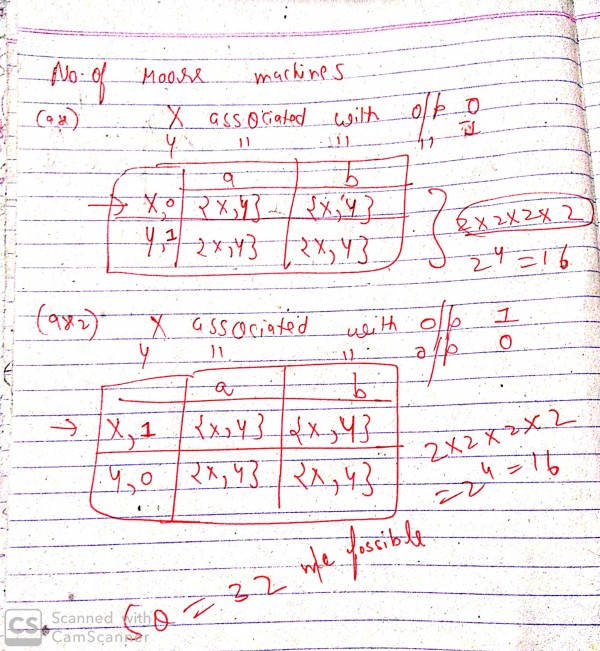 No. of Moore machines
(case) X associated with o/p 0
y 11 11 11 1
a b
→ X,0 {x,y} {x,y}
y,1 {x,y} {x,y}
2x2x2x2
2⁴ = 16
(case2) X associated with o/p 1
y 11 11 o/p 0
a b
→ X,1 {x,y} {x,y}
y,0 {x,y} {x,y}
2x2x2x2
= 2⁴ = 16
So = 32 m/c possible
CS Scanned with
CamScanner